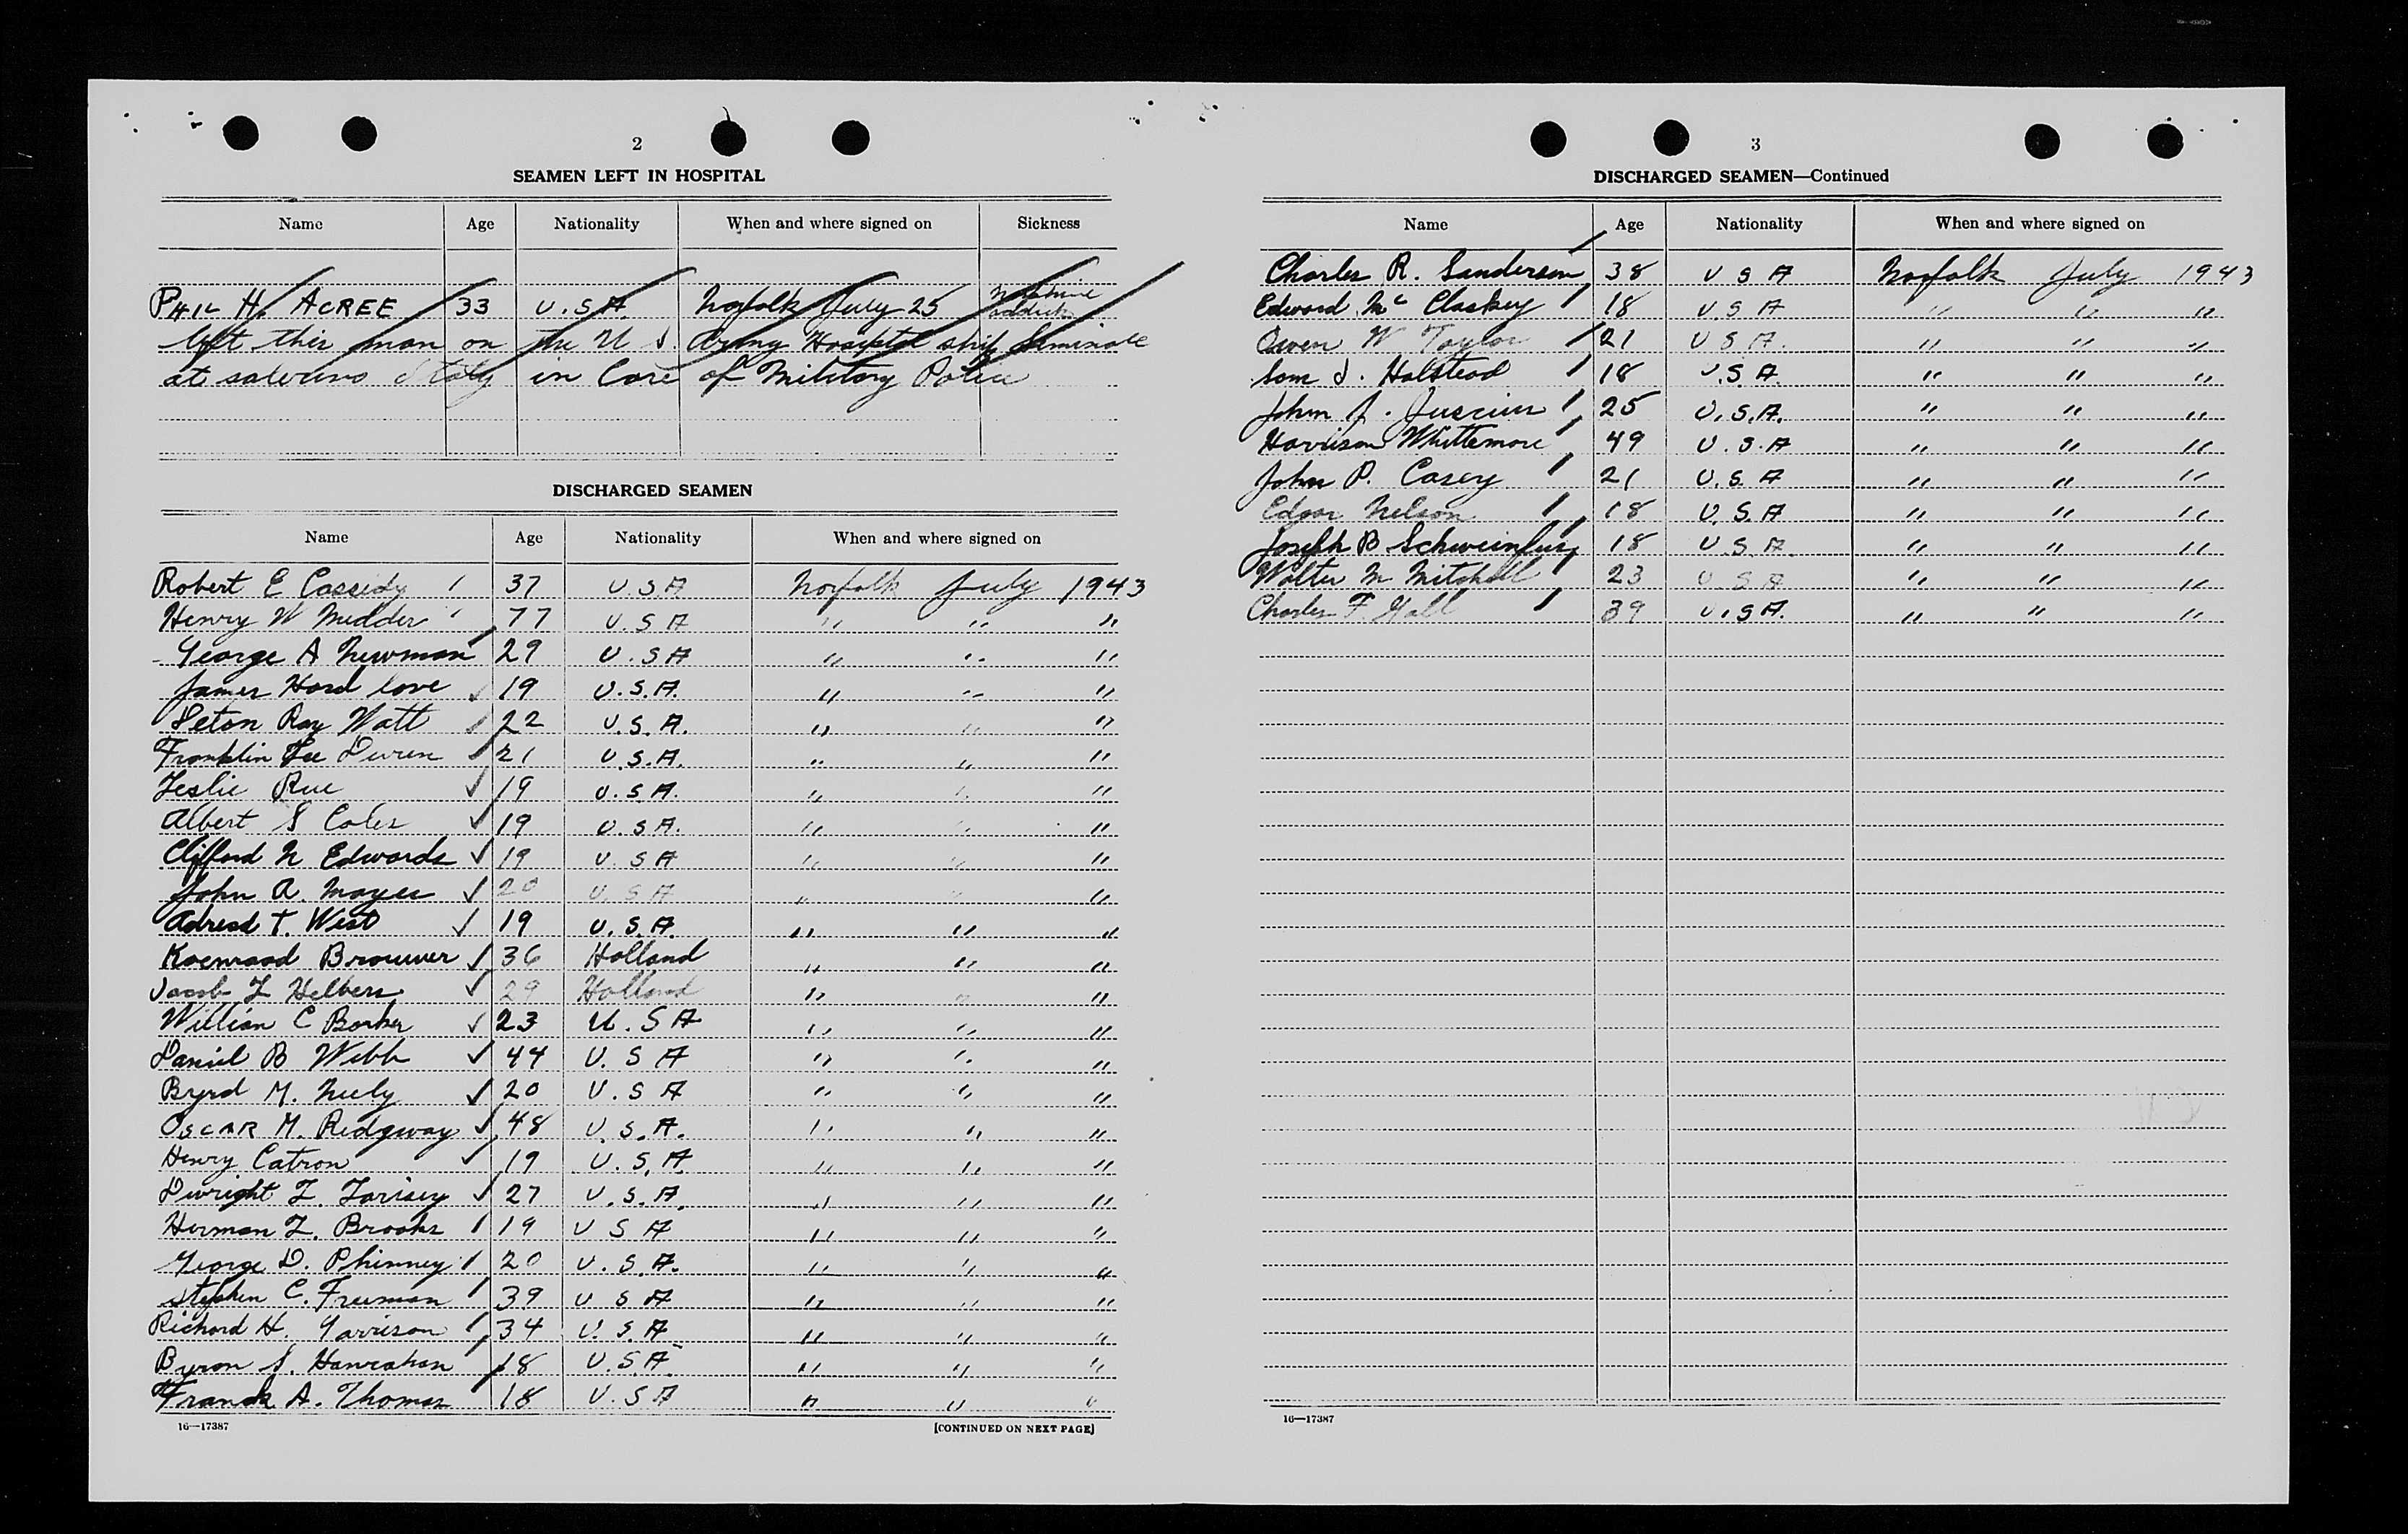 2
SEAMEN LEFT IN HOSPITAL
Name Age Nationality When and where signed on Sickness
PHIL H. ACREE 33 U.S.A Norfolk July 25 Morphine addict
left this man on the U S. Army Hospital ship Seminole
at salerino Italy in Care of Military Police
DISCHARGED SEAMEN
Name Age Nationality When and where signed on
Robert E Cassidy 37 U.S.A Norfolk July 1943
Henry W Medder 77 U.S A " " "
George A Newman 29 U.S A " " "
James Hord love 19 U.S.A. " " "
Seton Ray Watt 22 U.S.A. " " "
Franklin Lee 21 U.S.A. " " "
Leslie Rue 19 U.S.A. " " "
Albert S Coles 19 U.S A. " " "
Clifford N Edwards 19 U. S A " " "
John A. Mayer 20 U. S A " " "
T. West 19 U.S.A. " " "
Koenraad Brouwer 36 Holland " " "
Jacob L Helbers 29 Holland " " "
William C Barker 23 U.S A " " "
Daniel B Webb 44 U. S A " " "
Byrd M. Neely 20 U. S A " " "
OSCAR M. Ridgway 48 U.S.A. " " "
Henry Catron 19 U.S.A. " " "
Dwright L. 27 U.S.A. " " "
Herman L. Brooks 19 U S A " " "
George D. Phinney 20 U.S.A. " " "
Stephen C. Freeman 39 U S A " " "
Richard H. Garrison 34 U.S.A " " "
Byron S. Hanrahan 18 U.S.A " " "
Frank A. Thomas 18 U.S A " " "
16—17387 [CONTINUED ON NEXT PAGE]
3
DISCHARGED SEAMEN—Continued
Name Age Nationality When and where signed on
Charles R. Sanderson 38 U S A Norfolk July 1943
Edward Mc Claskey 18 U.S A " " "
Owen W Taylor 21 U S A. " " "
Sam S. Halstead 18 U.S A. " " "
John J. 25 U.S.A. " " "
Harrison Whittemore 49 U.S.A " " "
John P. Casey 21 U.S.A " " "
Edgar Nelson 18 U.S.A " " "
Joseph B Schweinfurg 18 U S A. " " "
Walter M Mitchell 23 U S A " " "
Charles F. Hall 39 U.S A. " " "
16—17387